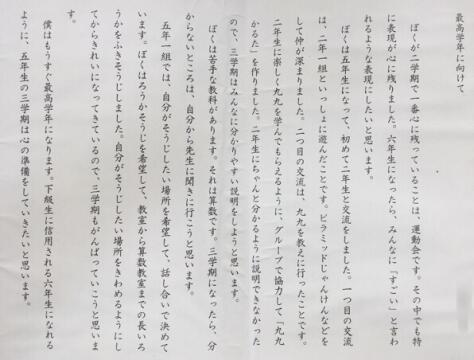 最高学年に向けて
ぼくが二学期で一番心に残っていることは、運動会です。その中でも特
に表現が心に残りました。六年生になったら、みんなに「すごい」と言わ
れるような表現にしたいと思います。
ぼくは五年生になって、初めて二年生と交流をしました。一つ目の交流
は、二年一組といっしょに遊んだことです。ピラミッドじゃんけんなどを
して仲が深まりました。二つ目の交流は、九九を教えに行ったことです。
二年生に楽しく九九を学んでもらえるように、グループで協力して「九九
かるた」を作りました。二年生にちゃんと分かるように説明できなかった
ので、三学期はみんなに分かりやすい説明をしようと思います。
ぼくは苦手な教科があります。それは算数です。三学期になったら、分
からないところは、自分から先生に聞きに行こうと思います。
五年一組では、自分がそうじしたい場所を希望して、話し合いで決めて
います。ぼくはろうかそうじを希望して、教室から算数教室までの長いろ
うかをふきそうじしました。自分がそうじしたい場所をきわめるようにし
てからきれいになってきているので、三学期もがんばっていこうと思いま
す。
僕はもうすぐ最高学年になります。下級生に信用される六年生になれる
ように、五年生の三学期は心の準備をしていきたいと思います。